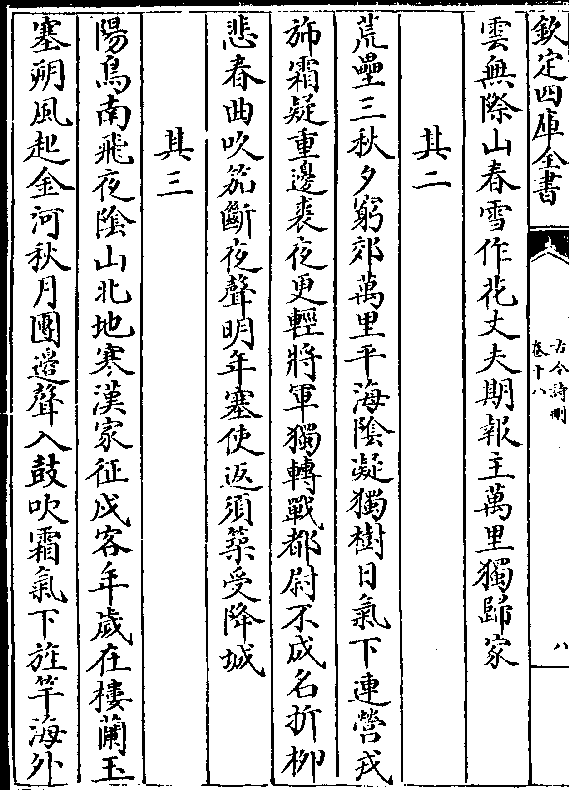 欽定四庫全書
古今詩刪
卷十八
八
雲無際山春雪作花丈夫期報主萬里獨歸家
其二
荒壘三秋夕窮郊萬里平海陰凝獨樹日氣下連營戎
斾霜疑重邊裘夜更輕將軍獨轉戰都尉不成名折柳
悲春曲吹笳斷夜聲明年塞使返須築受降城
其三
陽鳥南飛夜陰山北地寒漢家征戍客年歲在樓蘭玉
塞朔風起金河秋月團邉聲入鼓吹霜氣下旌竿海外